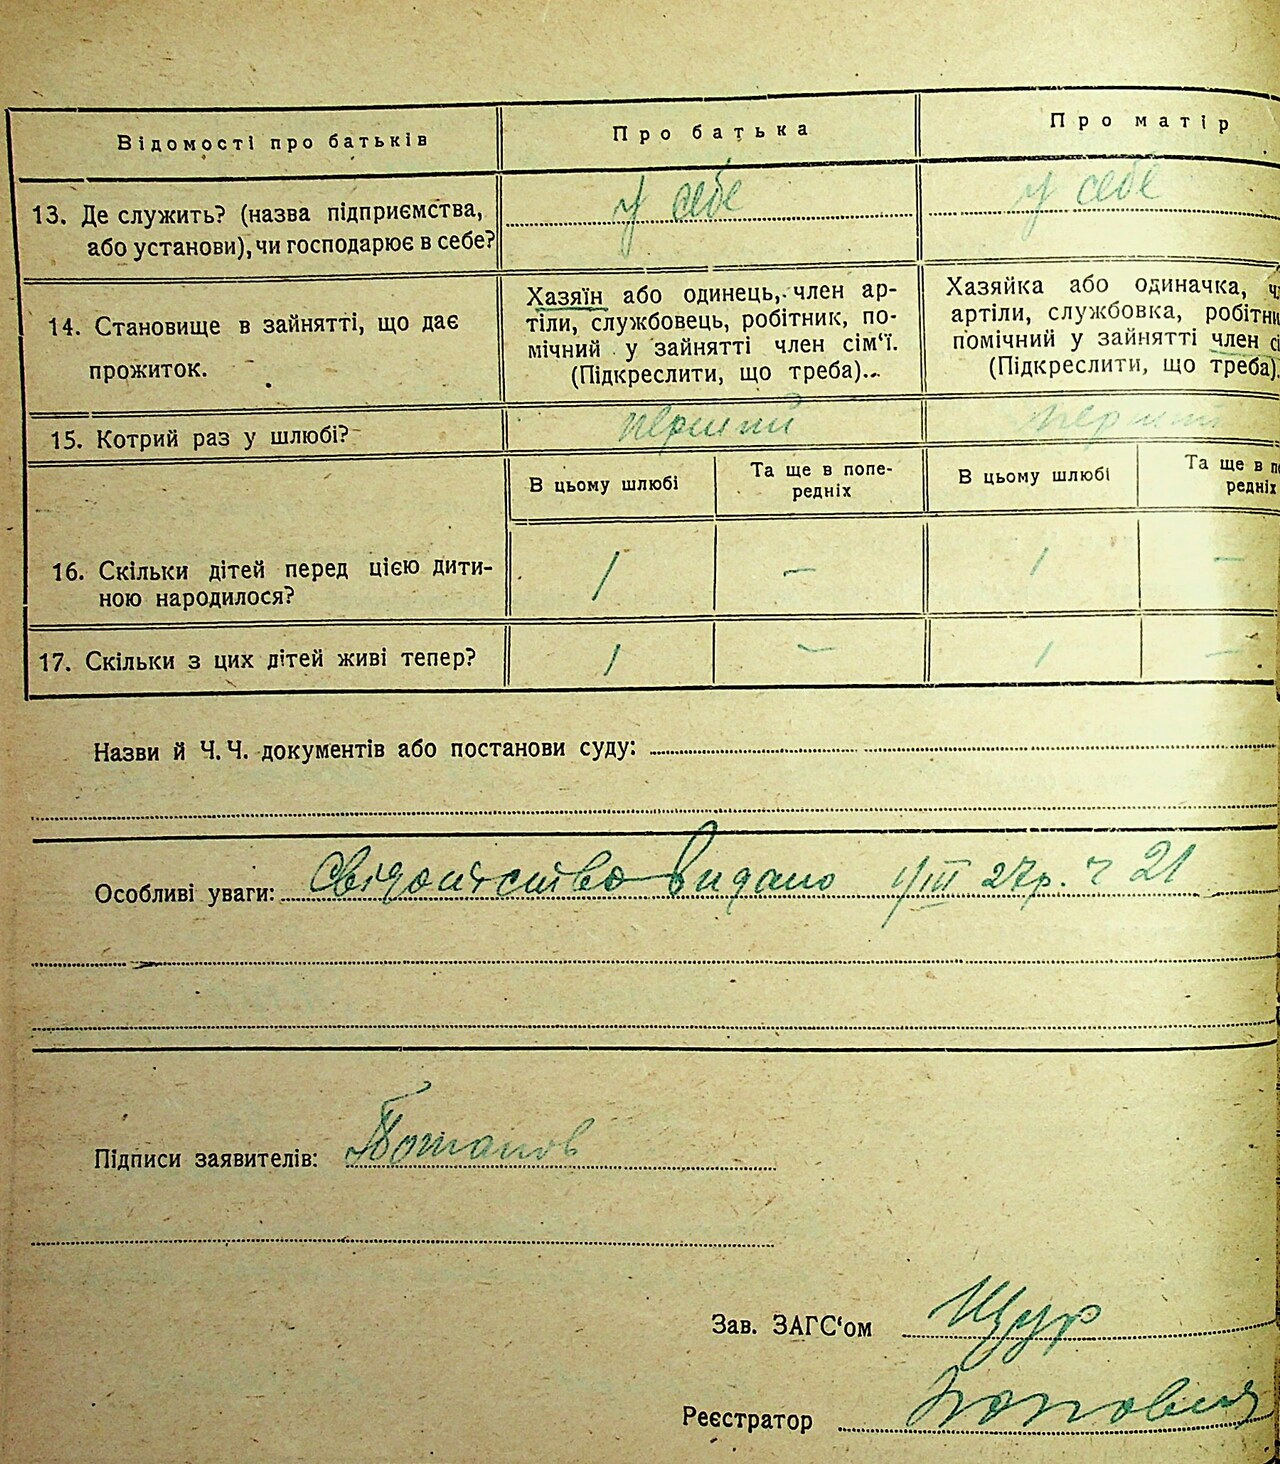 Відомості про батьків
Про батька
Про матір
13. Де служить? (назва підприємства,
або установи), чи господарює в себе?
у себе
у себе
14. Становище в зайнятті, що дає
прожиток.
Хазяїн або одинець, член ар-
тіли, службовець, робітник, по-
мічний у зайнятті член сім‘ї.
(Підкреслити, що треба)...
Хазяйка або одиначка, ч
артіли, службовка, робітн
помічний у зайнятті член сі
(Підкреслити, що треба).
15. Котрий раз у шлюбі?
перший
перший
В цьому шлюбі
Та ще в попе-
редніх
В цьому шлюбі
Та ще в по
редніх
16. Скільки дітей перед цією дити-
ною народилося?
1
—
1
—
17. Скільки з цих дітей живі тепер?
1
—
1
—
Назви й Ч.Ч. документів або постанови суду:
Особливі уваги: Свідоцтво видано 1/III 27р. ч 21
Підписи заявителів: Потапов
Зав. ЗАГС‘ом Щур
Реєстратор Попович